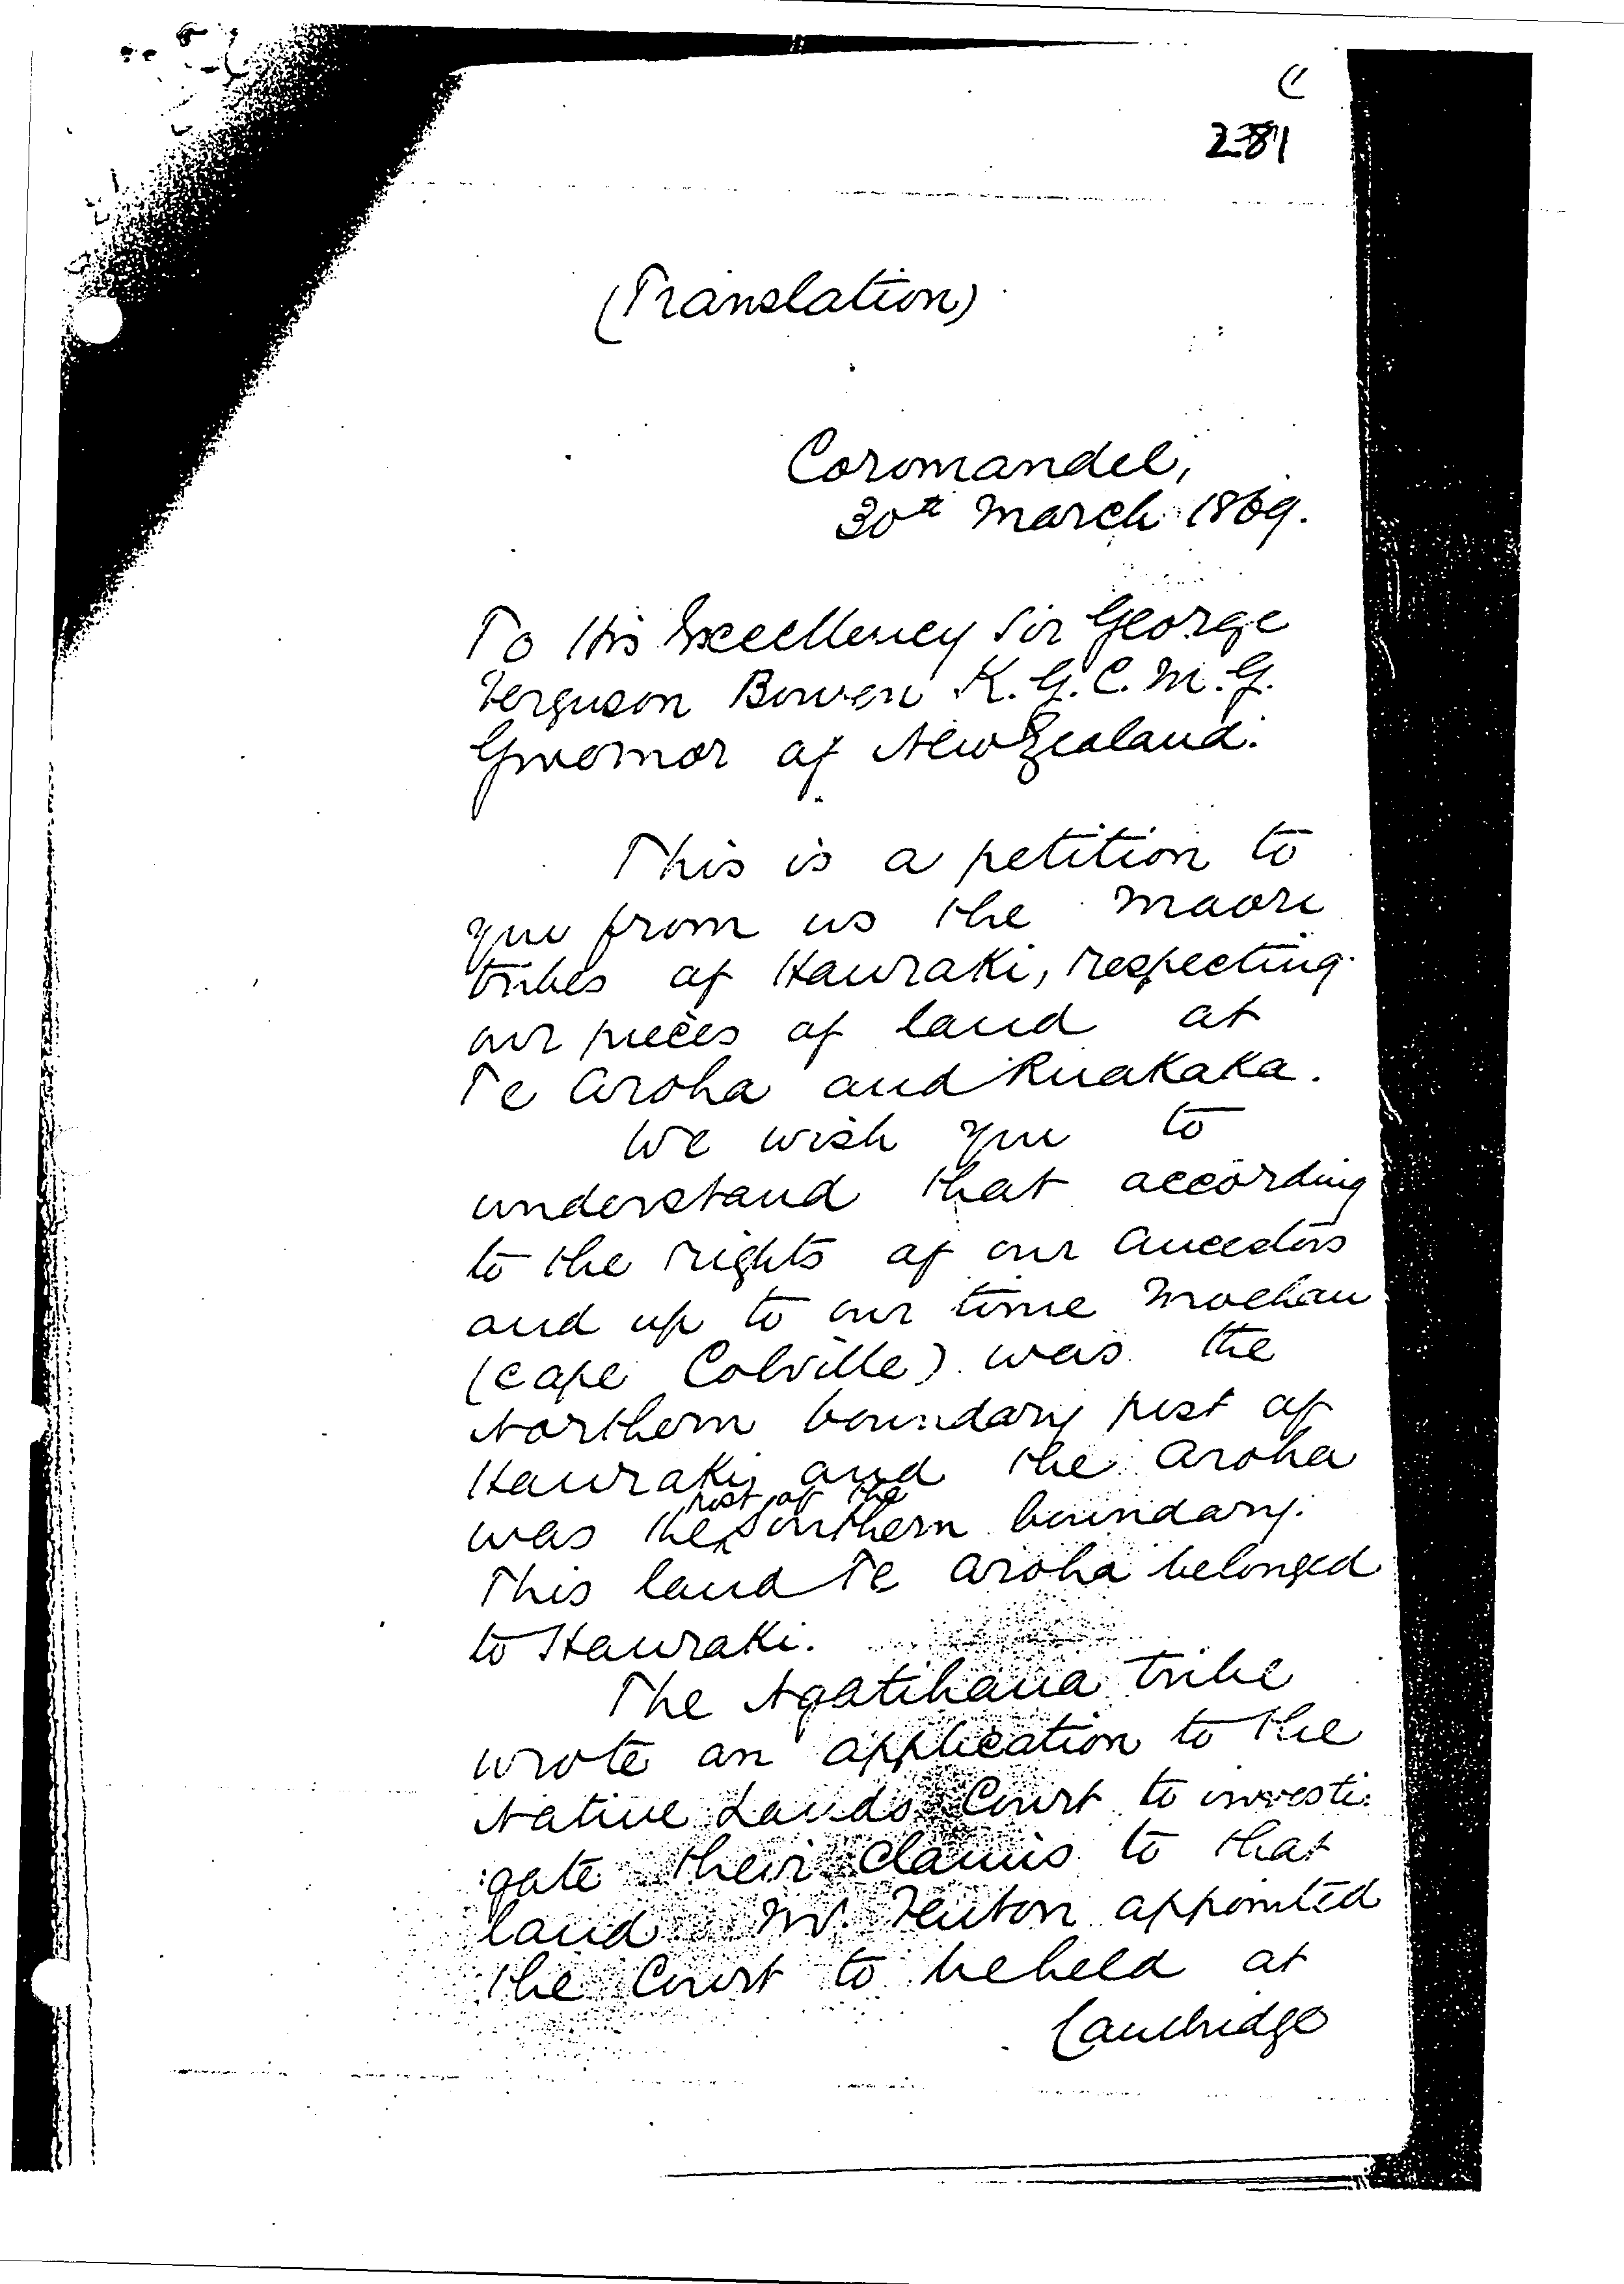 C
281
(Translation)
Coromandel,
30th March 1869.
To His Excellency Sir George
Ferguson Bowen K.G.C.M.G.
Governor of New Zealand.
This is a petition to
you from us the Maori
tribes of Hauraki, respecting
our pieces of land at
Te Aroha and Ruakaka.
We wish you to
understand that according
to the rights of our ancestors
and up to our time Moehau
(Cape Colville) was the
Northern boundary post of
Hauraki, and the Aroha
post of the
was the Southern boundary.
This land Te Aroha belonged
to Hauraki.
The Ngatihaua tribe
wrote an application to the
Native Lands Court to investi:
:gate their claims to that
land Mr. Fenton appointed
the Court to be held at
Cambridge